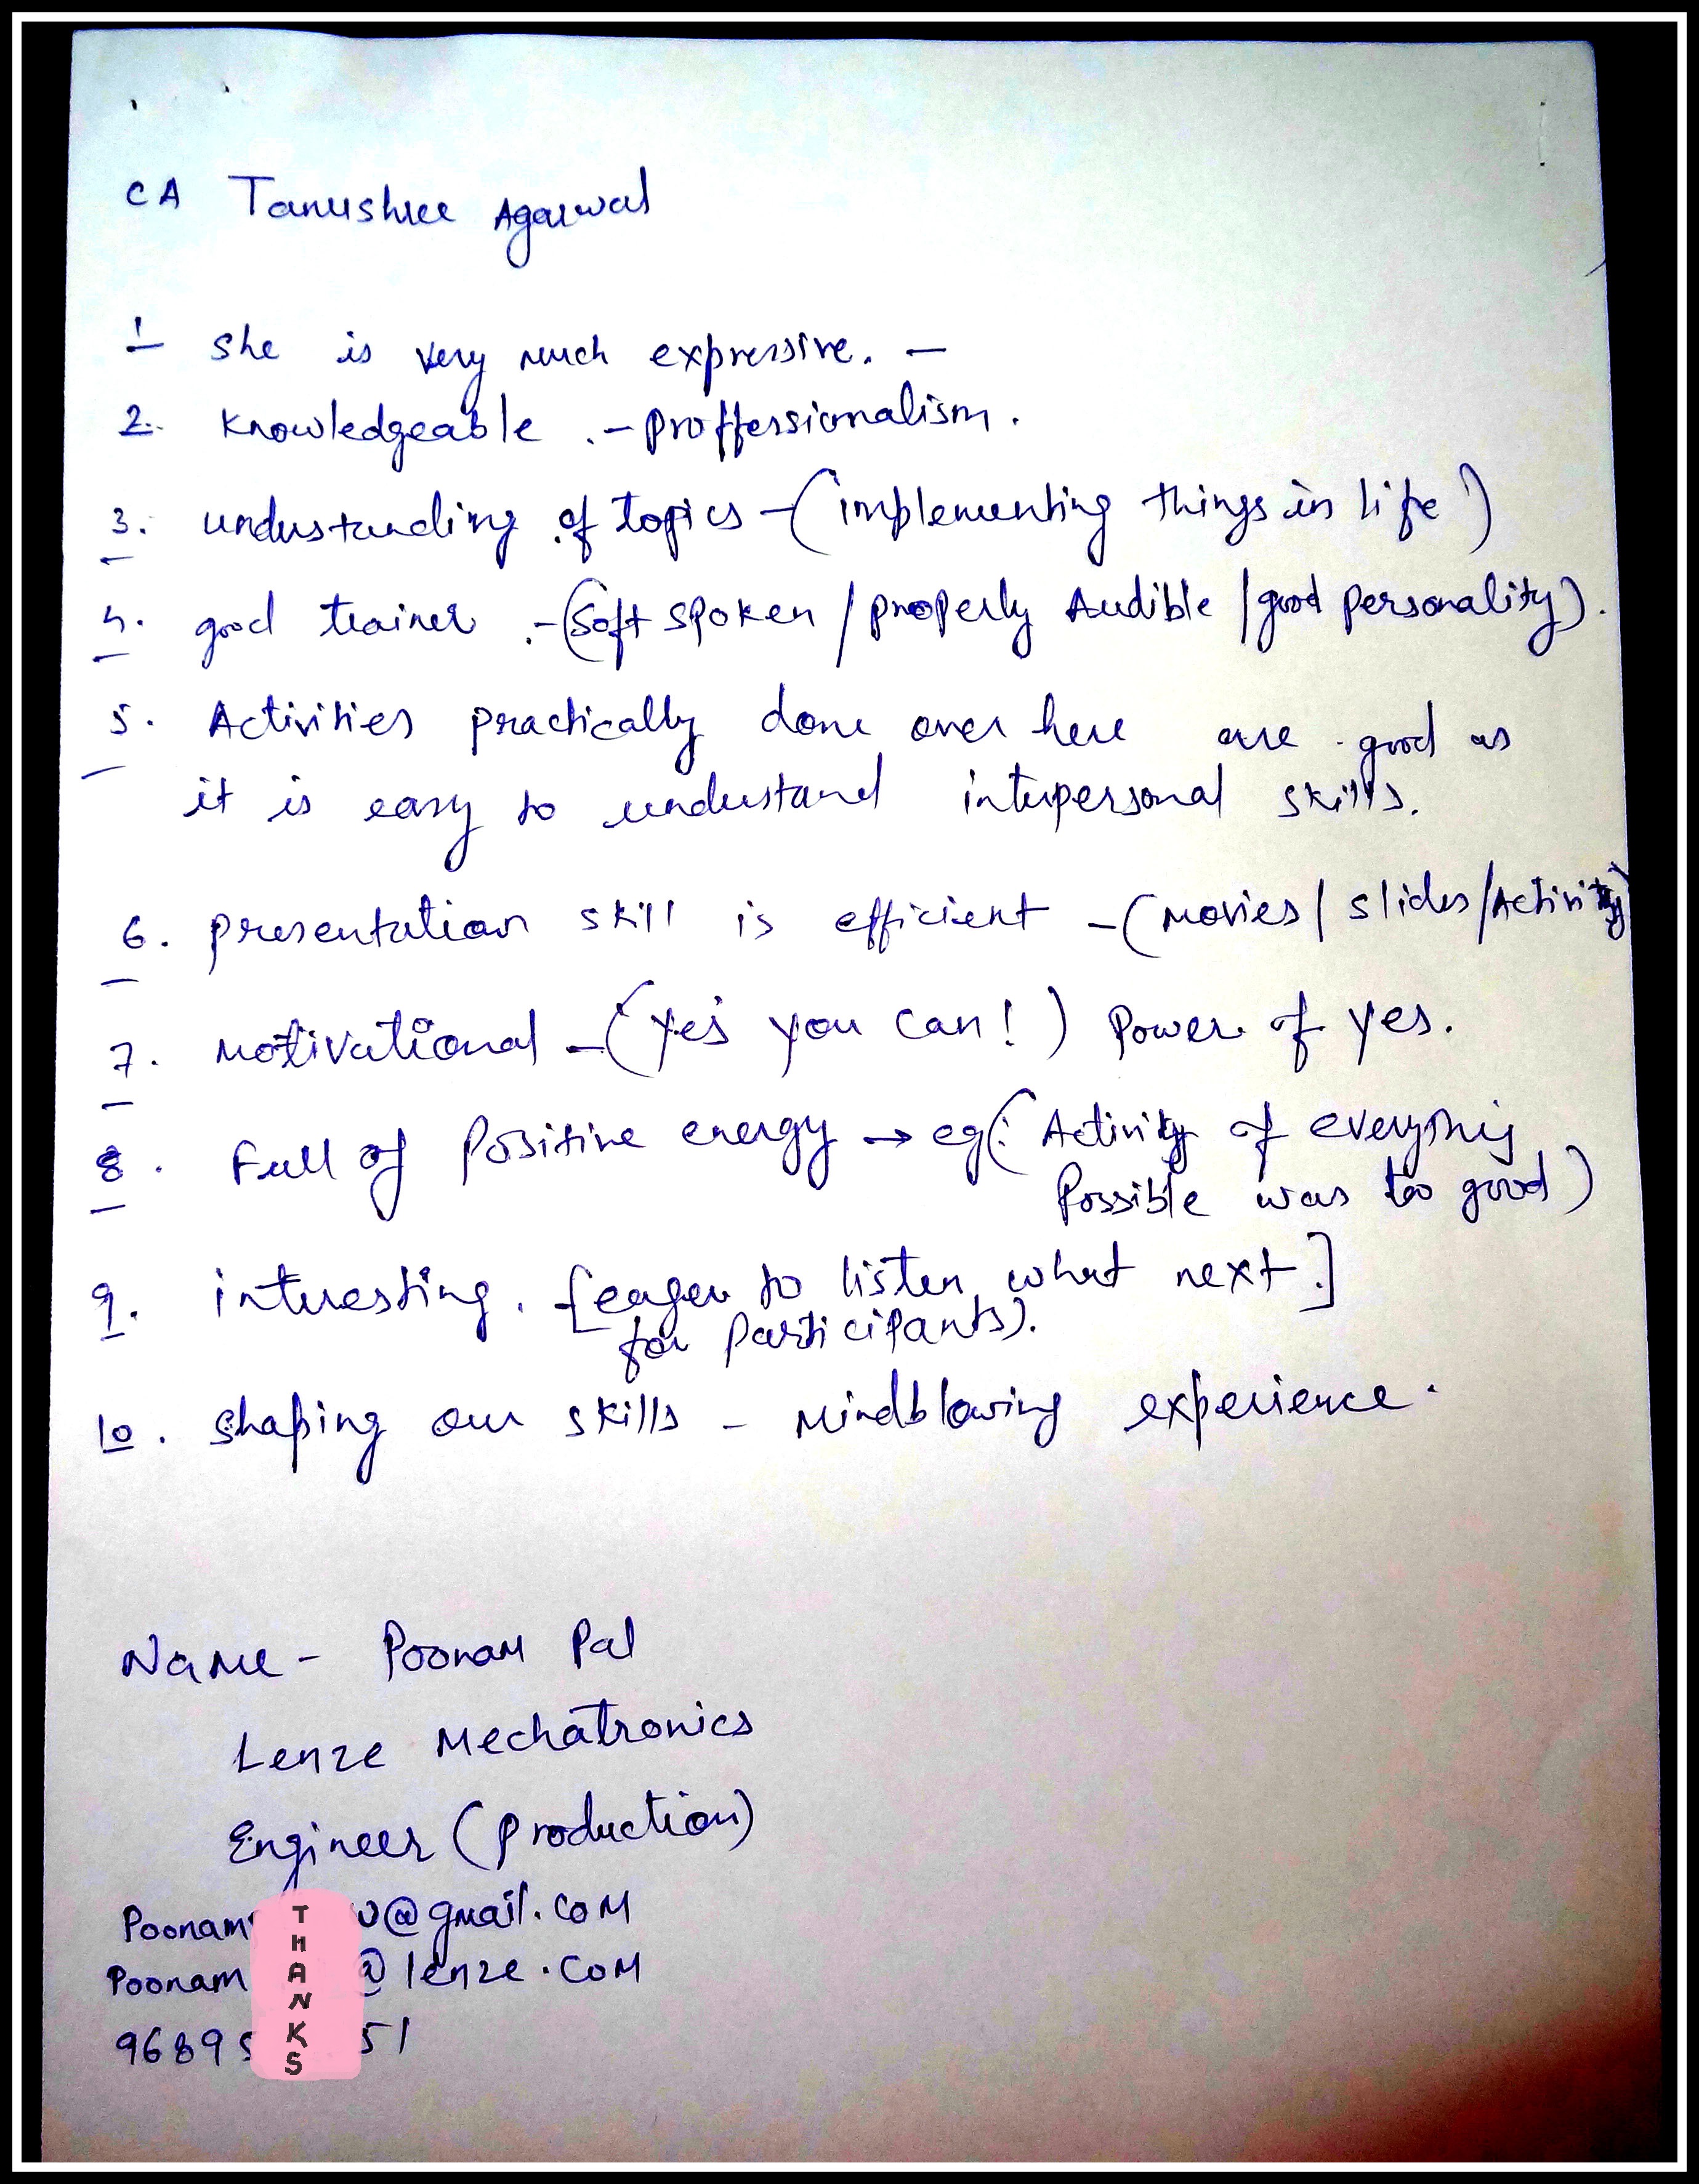 CA Tanushree Agarwal
1 She is very much expressive. -
2. Knowledgeable .- proffessionalism.
3. understanding of topics - (implementing things in life)
4. good trainer .- (Soft spoken / properly Audible / good personality).
5. Activities practically done over here are good as
it is easy to understand interpersonal skills.
6. presentation skill is efficient - (Movies / slides / Activity)
7. Motivational - (Yes you can!) Power of yes.
8. Full of Positive energy → eg (: Activity of everything
Possible was too good)
9. interesting. [eager to listen what next.]
for Participants).
10. shaping our skills - Mindblowing experience.
Name - Poonam Pal
Lenze Mechatronics
Engineer (Production)
Poonam @gmail.com
Poonam @lenze.com
9689 51
THANKS